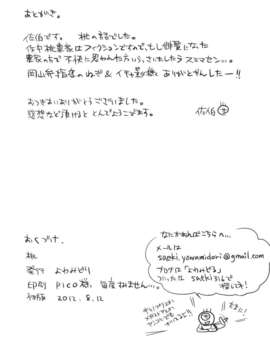 あとがき。
佐伯です。桃の話でした。
作中桃農家はフィクションですので、もし御覧になった
農家の方で不快に思われた方いらっさいましたらスミマセン…。
岡山弁指南のぬぎ&イサ瓢様 ありがとがんしたー!!
おつきあいありがとうございました。
感想など頂けると とんでよろこびます。
佐伯
おくづけ。
桃
発行 よわみどり
印刷 pico様、毎度すいません…。
初版 2012.8.12
なにかあればこちらへ…
メールは
saeki.yowamidori@gmail.com
ブログは「よわみどる」
ついったは saeki316で